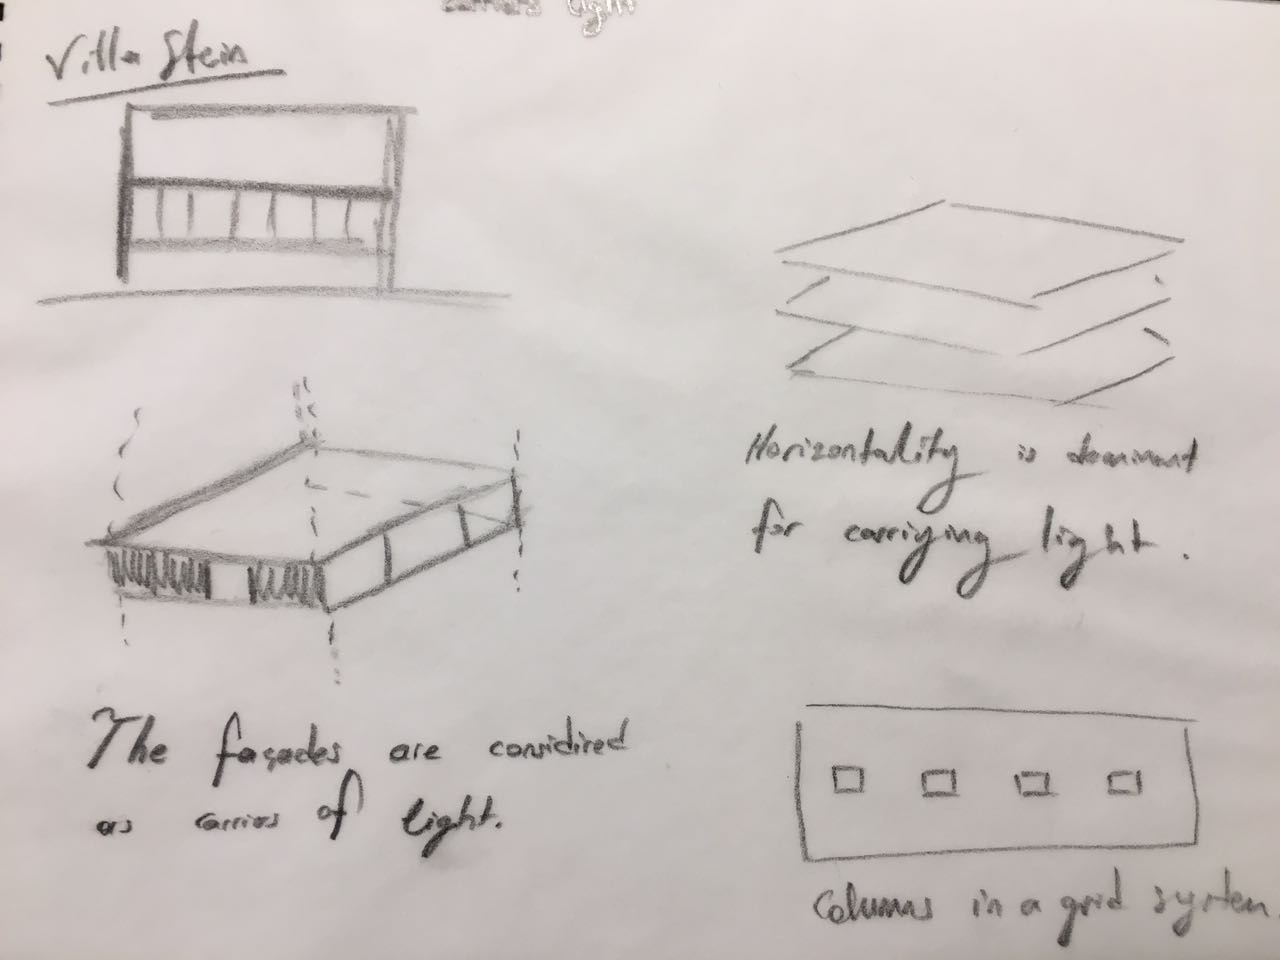 Carriers light
Villa Stein
Horizontality is dominant
for carrying light.
The façades are considired
as carries of light.
Columns in a grid system.